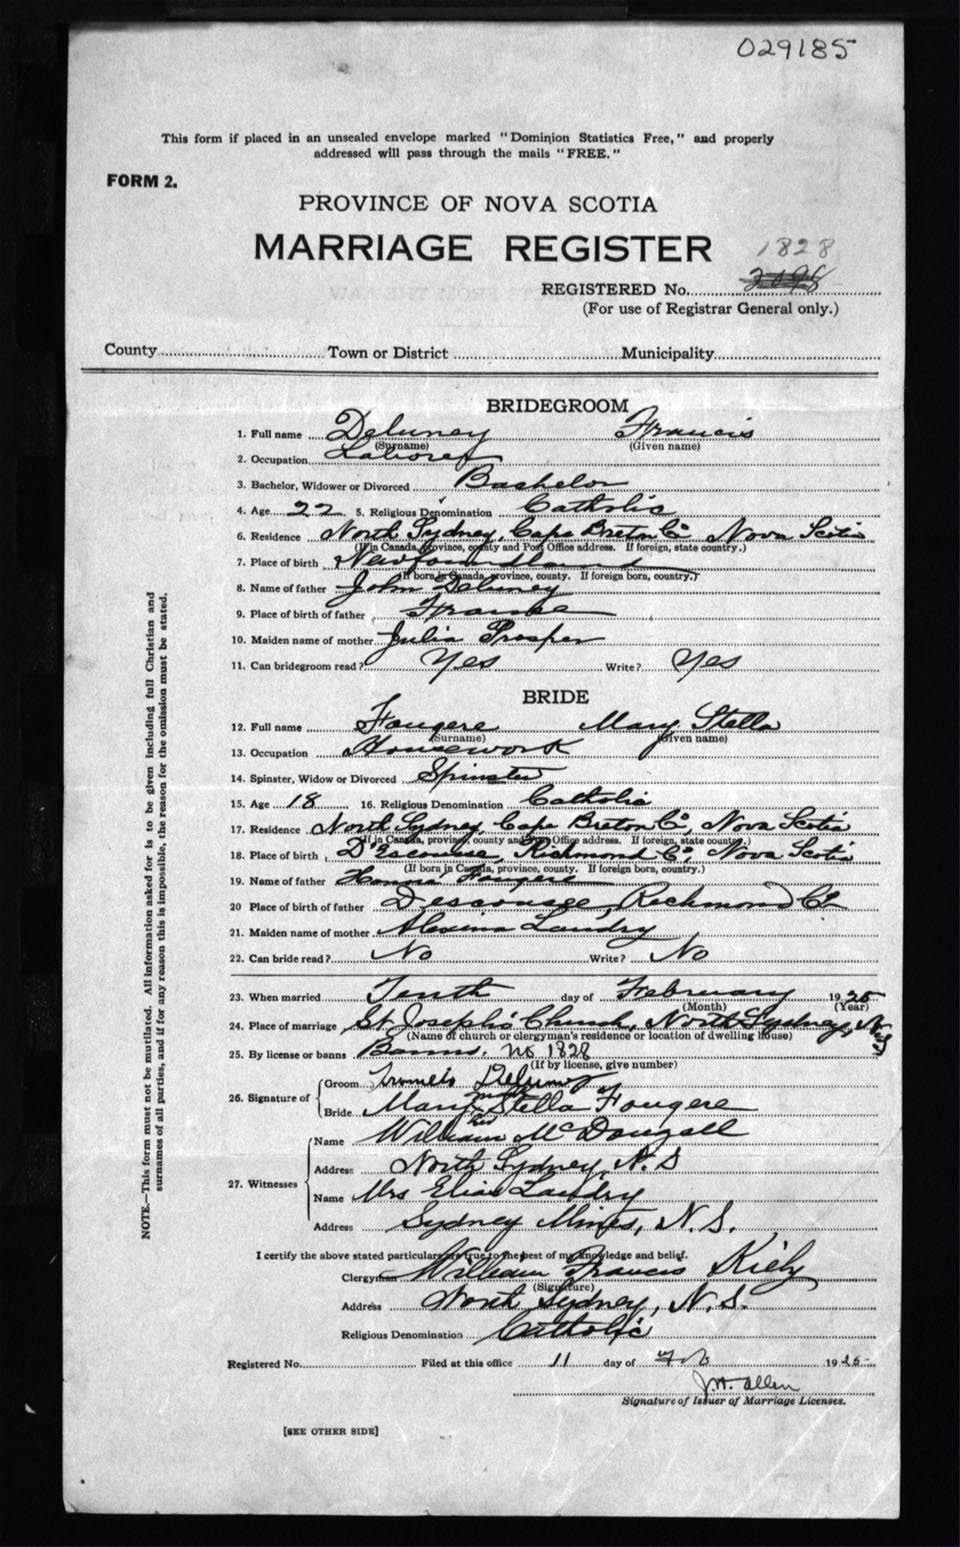 029185
This form if placed in an unsealed envelope marked "Dominion Statistics Free," and properly
addressed will pass through the mails "FREE."
FORM 2.
PROVINCE OF NOVA SCOTIA
MARRIAGE REGISTER
1828
REGISTERED No.
(For use of Registrar General only.)
County Town or District Municipality
BRIDEGROOM
1. Full name Deluney Francis
(Surname) (Given name)
2. Occupation Laborer
3. Bachelor, Widower or Divorced Bachelor
4. Age 22 5. Religious Denomination Catholic
6. Residence North Sydney, Cape Breton Co Nova Scotia
(If in Canada, province, county and Post Office address. If foreign, state country.)
7. Place of birth Newfoundland
(If born in Canada, province, county. If foreign born, country.)
8. Name of father John Deluney
9. Place of birth of father France
10. Maiden name of mother Julia Prosper
11. Can bridegroom read? Yes Write? Yes
BRIDE
12. Full name Fougere Mary Stella
(Surname) (Given name)
13. Occupation Housework
14. Spinster, Widow or Divorced Spinster
15. Age 18 16. Religious Denomination Catholic
17. Residence North Sydney, Cape Breton Co, Nova Scotia
(If in Canada, province, county and Post Office address. If foreign, state country.)
18. Place of birth D'Escousse, Richmond Co, Nova Scotia
(If born in Canada, province, county. If foreign born, country.)
19. Name of father Fougere
20 Place of birth of father Descousse, Richmond Co
21. Maiden name of mother Alexina Landry
22. Can bride read? No Write? No
23. When married Tenth day of February 1925
(Month) (Year)
24. Place of marriage St. Joseph's Church, North Sydney, N.S.
(Name of church or clergyman's residence or location of dwelling house)
25. By license or banns Banns. No 1828
(If by license, give number)
26. Signature of
Groom Deluney
Bride Mary Stella Fougere
her
mark
27. Witnesses
Name William McDougall
Address North Sydney, N.S
Name Mrs Elias Landry
Address Sydney Mines, N.S.
I certify the above stated particulars are true to the best of my knowledge and belief.
Clergyman William Francis Kiely
(Signature)
Address North Sydney, N.S.
Religious Denomination Catholic
Registered No. Filed at this office 11 day of Feb 1925
J.H. Allen
Signature of Issuer of Marriage Licenses.
[SEE OTHER SIDE]
NOTE.—This form must not be mutilated. All information asked for is to be given including full Christian and
surnames of all parties, and if for any reason this is impossible, the reason for the omission must be stated.